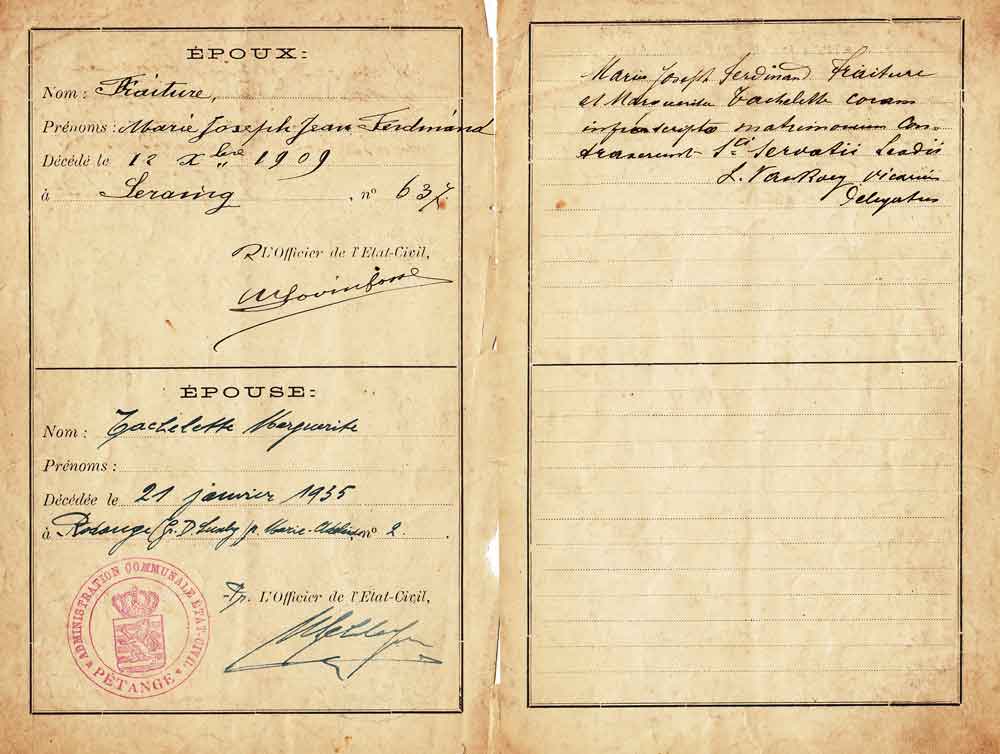 ÉPOUX:
Nom : Fraiture,
Prénoms : Marie Joseph Jean Ferdinand
Décédé le 12 Xbre 1909
à Seraing, n° 637.
L'Officier de l'Etat-Civil,
ÉPOUSE:
Nom : Tachelette Marguerite
Prénoms :
Décédée le 21 janvier 1935
à Rodange (Gr. D. Luxbg) r. Marie-Adélaïde, n° 2.
Pr. L'Officier de l'Etat-Civil,
ADMINISTRATION COMMUNALE ETAT-CIVIL
PÉTANGE
Marie Joseph Ferdinand Fraiture
et Marguerite Tachelette coram
infrascripto matrimonium con-
traxerunt Sti Servatii Leodii
vicarius
delegatus